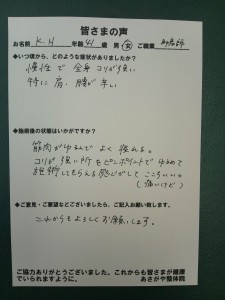 皆さまの声
お名前 K.H 年齢 41 歳 男・女 ご職業
◆いつ頃から、どのような症状がありましたか？
慢性で 全身 コリが強い
特に 肩、腰が 辛い
◆施術後の状態はいかがですか？
筋肉がゆるんで よく 眠れる。
コリが 強い所を ピンポイントで ゆるめて
施術してもらえる 感じがして ここちいい。
(痛いけど)
◆ご意見・ご要望などございましたら、ご記入お願い致します。
これからも よろしく お願いします。
ご協力ありがとうございました。これからも皆さまが健康
でいられますように。 あさがや整体院